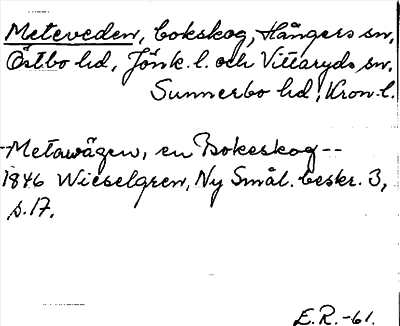 Meteveden, bokskog, Hångers sn,
Östbo hd, Jönk. l. och Vittaryds sn,
Sunnerbo hd, Kron. l.
Metawägen, en Bokeskog --
1846 Wieselgren, Ny Smål. beskr. 3,
s. 17.
E.R. -61.